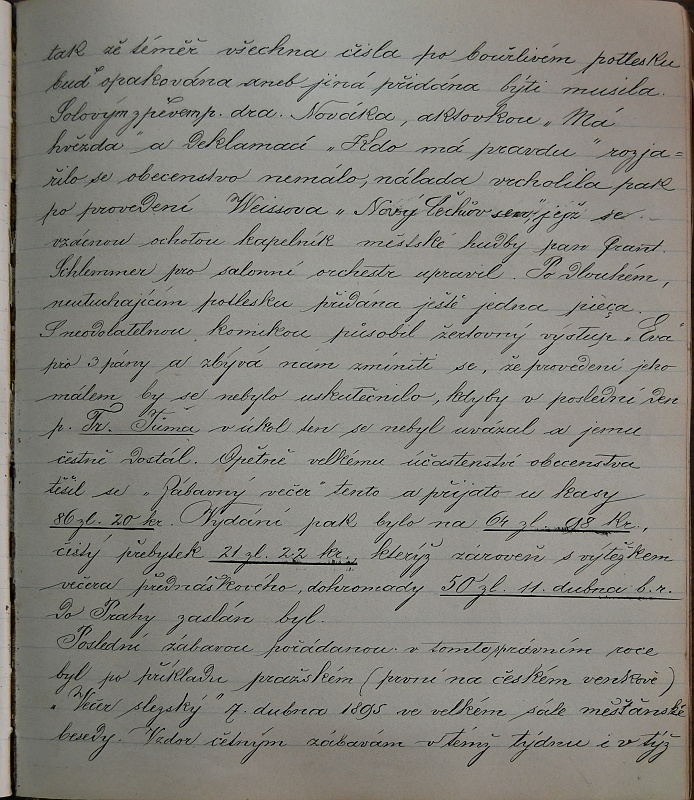 tak že téměř všechna čísla po bouřlivém potlesku
buď opakována aneb jiná přidána býti musila.
Solovým zpěvem p. dra. Nováka, aktovkou „Má
hvězda" a deklamací „Kdo má pravdu" rozja=
řilo se obecenstvo nemálo, nálada vrcholila pak
po provedení Weissova „Nový Čechův sen" jejž se
vzácnou ochotou kapelník městské hudby pan Frant.
Schlemmer pro salonní orchestr upravil. Po dlouhém,
neutuchajícím potlesku přidana ještě jedna pieça.
S neodolatelnou komikou působil žertovný výstup „Eva"
pro 3 pány a zbývá nám zmíniti se, že provedení jeho
málem by se nebylo uskutečnilo, kdyby v poslední den
p. Fr. Tůma v úkol ten se nebyl uvázal a jemu
čestně dostál. Opětně velkému účastenství obecenstva
těšil se „Zábavný večer" tento a přijato u kasy
86 zl. 20 kr. Vydání pak bylo na 64 zl. 98 kr.,
čistý přebytek 21 zl. 22 kr., kterýž zároveň s výtěžkem
večera přednáškového, dohromady 50 zl. 11. dubna b.r.
do Prahy zaslán byl.
Poslední zábavou pořádanou v tomto správním roce
byl po příkladu pražském (první na českém venkově)
„Večer slezský" 7. dubna 1895 ve velkém sále měšťanské
besedy. Vzdor četným zábavám v témž týdnu i v týž